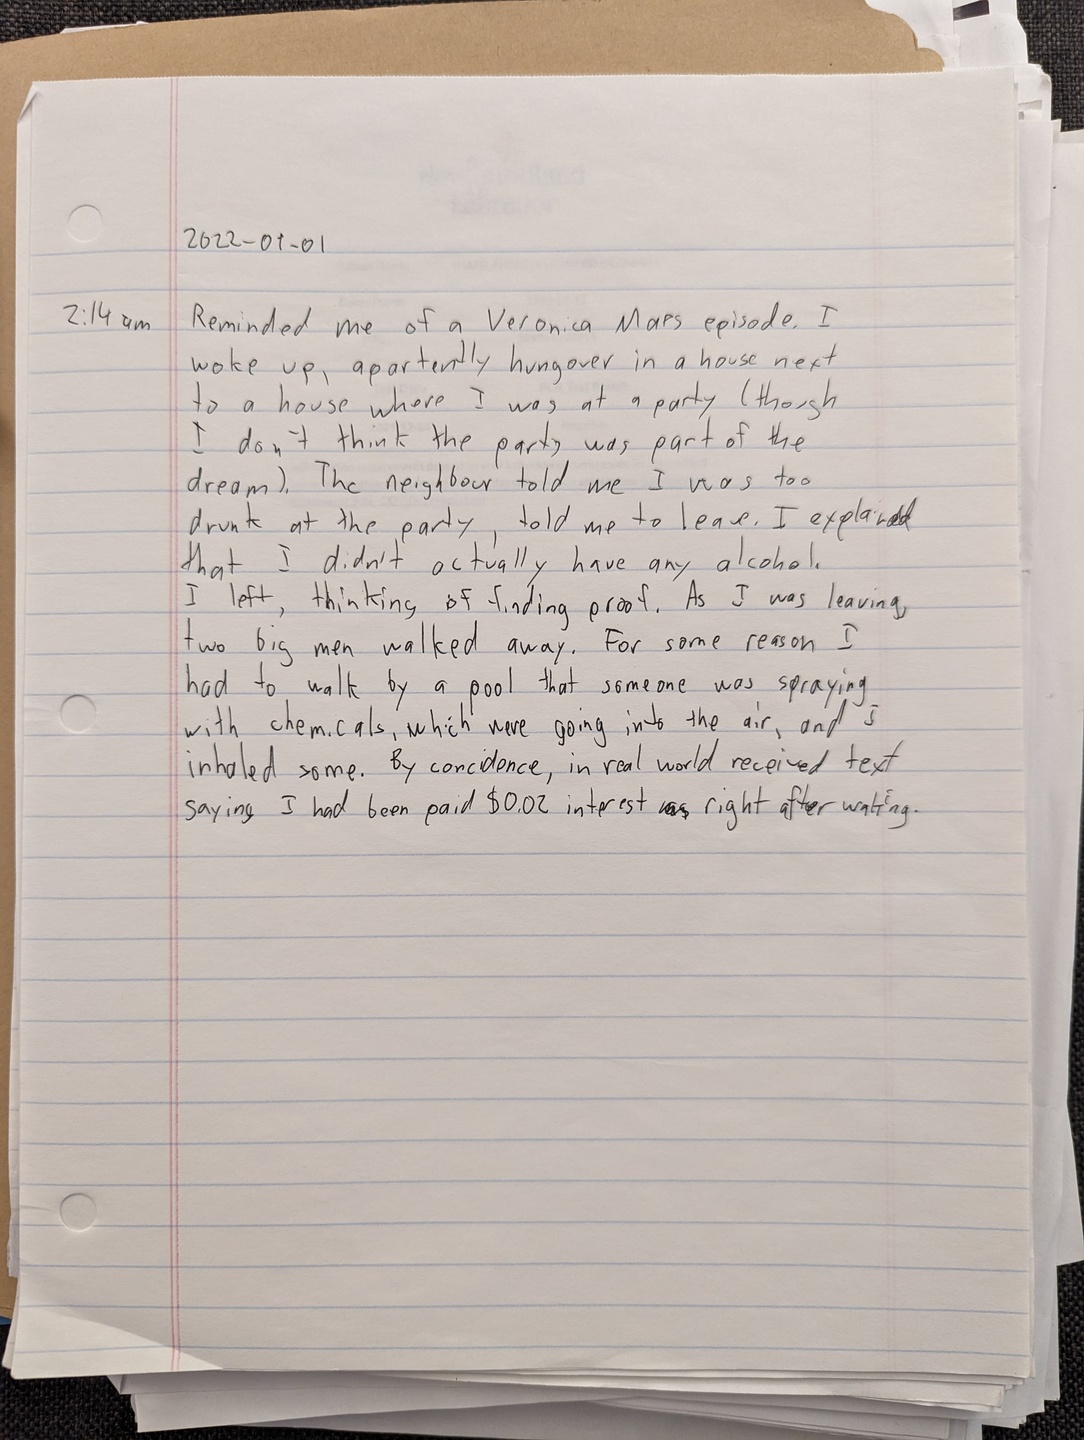 2022-01-01
2:14 am Reminded me of a Veronica Mars episode. I
woke up, apartently hungover in a house next
to a house where I was at a party (though
I don't think the party was part of the
dream). The neighbour told me I was too
drunk at the party, told me to leave. I explained
that I didn't actually have any alcohol.
I left, thinking of finding proof. As I was leaving,
two big men walked away. For some reason I
had to walk by a pool that someone was spraying
with chemicals, which were going into the air, and I
inhaled some. By concidence, in real world received text
saying I had been paid $0.02 interest right after waking.